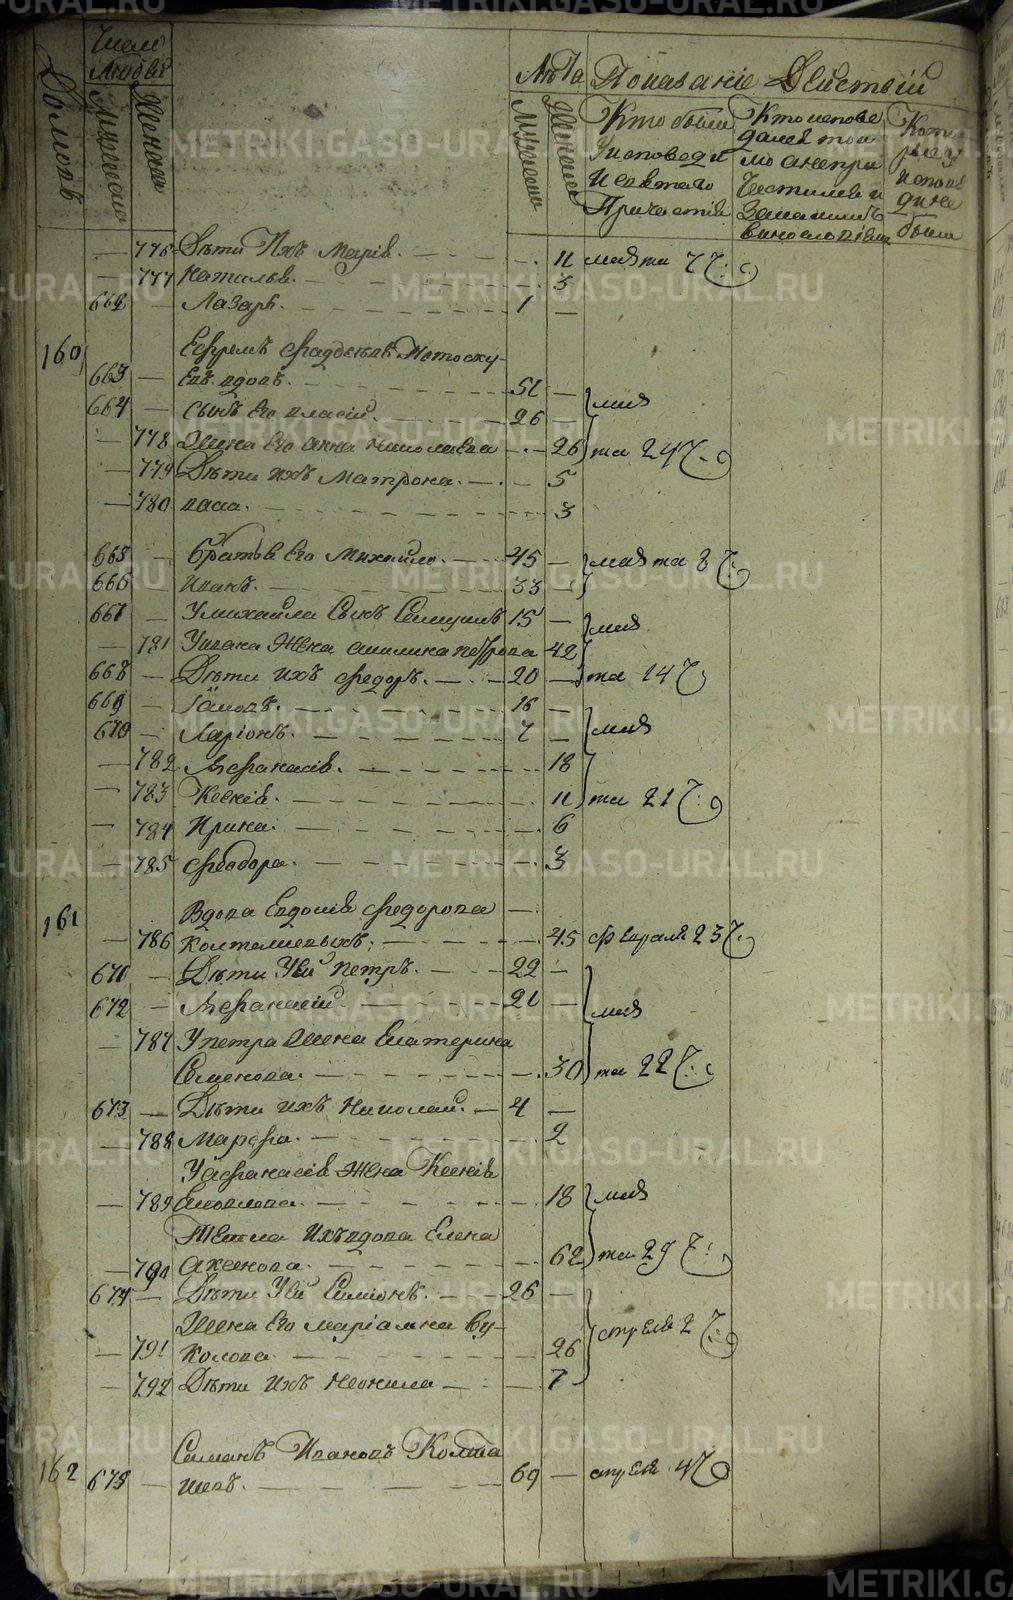 METRIKI.GASO-URAL.RU
Домовъ
Число
Людей
Мужеска
Женска
Лѣта
Мужеска
Женска
Показаніе Действій
Кто были
У исповеди
И святаго
Причастія
Кто испове
дался тол
ко а непри
частился и
за какимъ
винословіемъ
Кото
рые у
испове
ди не
были
776 Дѣти Ихъ Марія. 11 маія та 7 Ч:
777 Наталья. 3
662 Лазарь. 1
160
Ефремъ Фадѣевъ Потоску-
663 евъ вдовъ. 51
664 Сынъ Его Власій. 26 маія
778 Жена Его Анна Николаева 26 та 24 Ч.
779 Дѣти ихъ Матрона. 5
780 васа. 3
665 Братья Его Михайло. 45 маія та 8 Ч.
666 Иванъ. 33
667 У михайла Сынъ 15 маія
781 У ивана Жена акилина петрова 42
668 Дѣти ихъ Федоръ. 20 та 14 Ч.
669 Іаковъ. 16
670 Ларіонъ. 7 маія
782 Афанасія. 18
783 Ксенія. 11 та 21 Ч.
784 Ирина. 6
785 Феодора. 3
161
Вдова Евдокія Федорова
786 Колташевыхъ. 45 Февраля 23 Ч.
671 Дѣти У ей петръ. 22
672 Афанасій. 21 маія
787 У петра Жена Екатерина
Семенова. 30 та 22 Ч.
673 Дѣти ихъ Николай. 4
788 Марфа. 2
У афанасія Жена Ксенія
789 Яковлева. 18 маія
Тетка Ихъ вдова Елена
790 Аксенова. 62 та 29 Ч.
674 Дѣти У ей Симіонъ. 26
Жена Его Маріамна Ву- апреля 2 Ч.
791 колова. 26
792 Дѣти Ихъ Неонила 7
162
Симанъ Ивановъ Колта
675 шевъ. 69 апреля 4 Ч